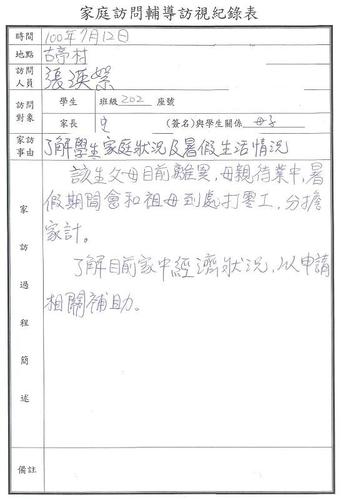 家庭訪問輔導訪視紀錄表
時間 100年7月12日
地點 古亭村
訪問人員 張瑛
訪問對象 學生 班級 202 座號
家長 (簽名)與學生關係 母子
家訪事由 了解學生家庭狀況及暑假生活情況
家訪過程簡述
該生父母目前離異,母親待業中,暑
假期間會和祖母到處打零工,分擔
家計。
了解目前家中經濟狀況,以申請
相關補助。
備註